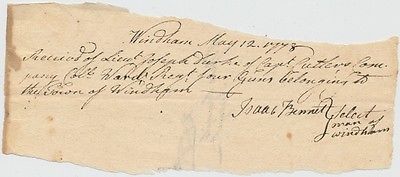 Windham May 12. 1778
Received of Lieut Joseph Burke of Capt Cutlers Com-
pany Colo. Wards Regt four Guns belonging to
the Town of Windham
Isaac Bennet
Select
man of
windham